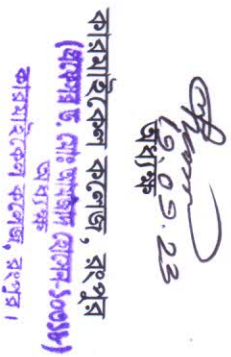 ১৭.০১.২3
অধ্যক্ষ
কারমাইকেল কলেজ, রংপুর
(প্রফেসর ড. মোঃ আমজাদ হোসেন-১০৩৯৮)
অধ্যক্ষ
কারমাইকেল কলেজ, রংপুর।